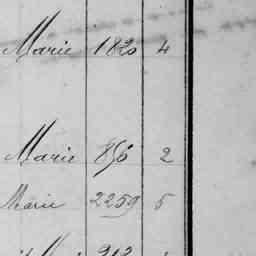 Marie 1820 4
Marie 856 2
Marie 2259 5